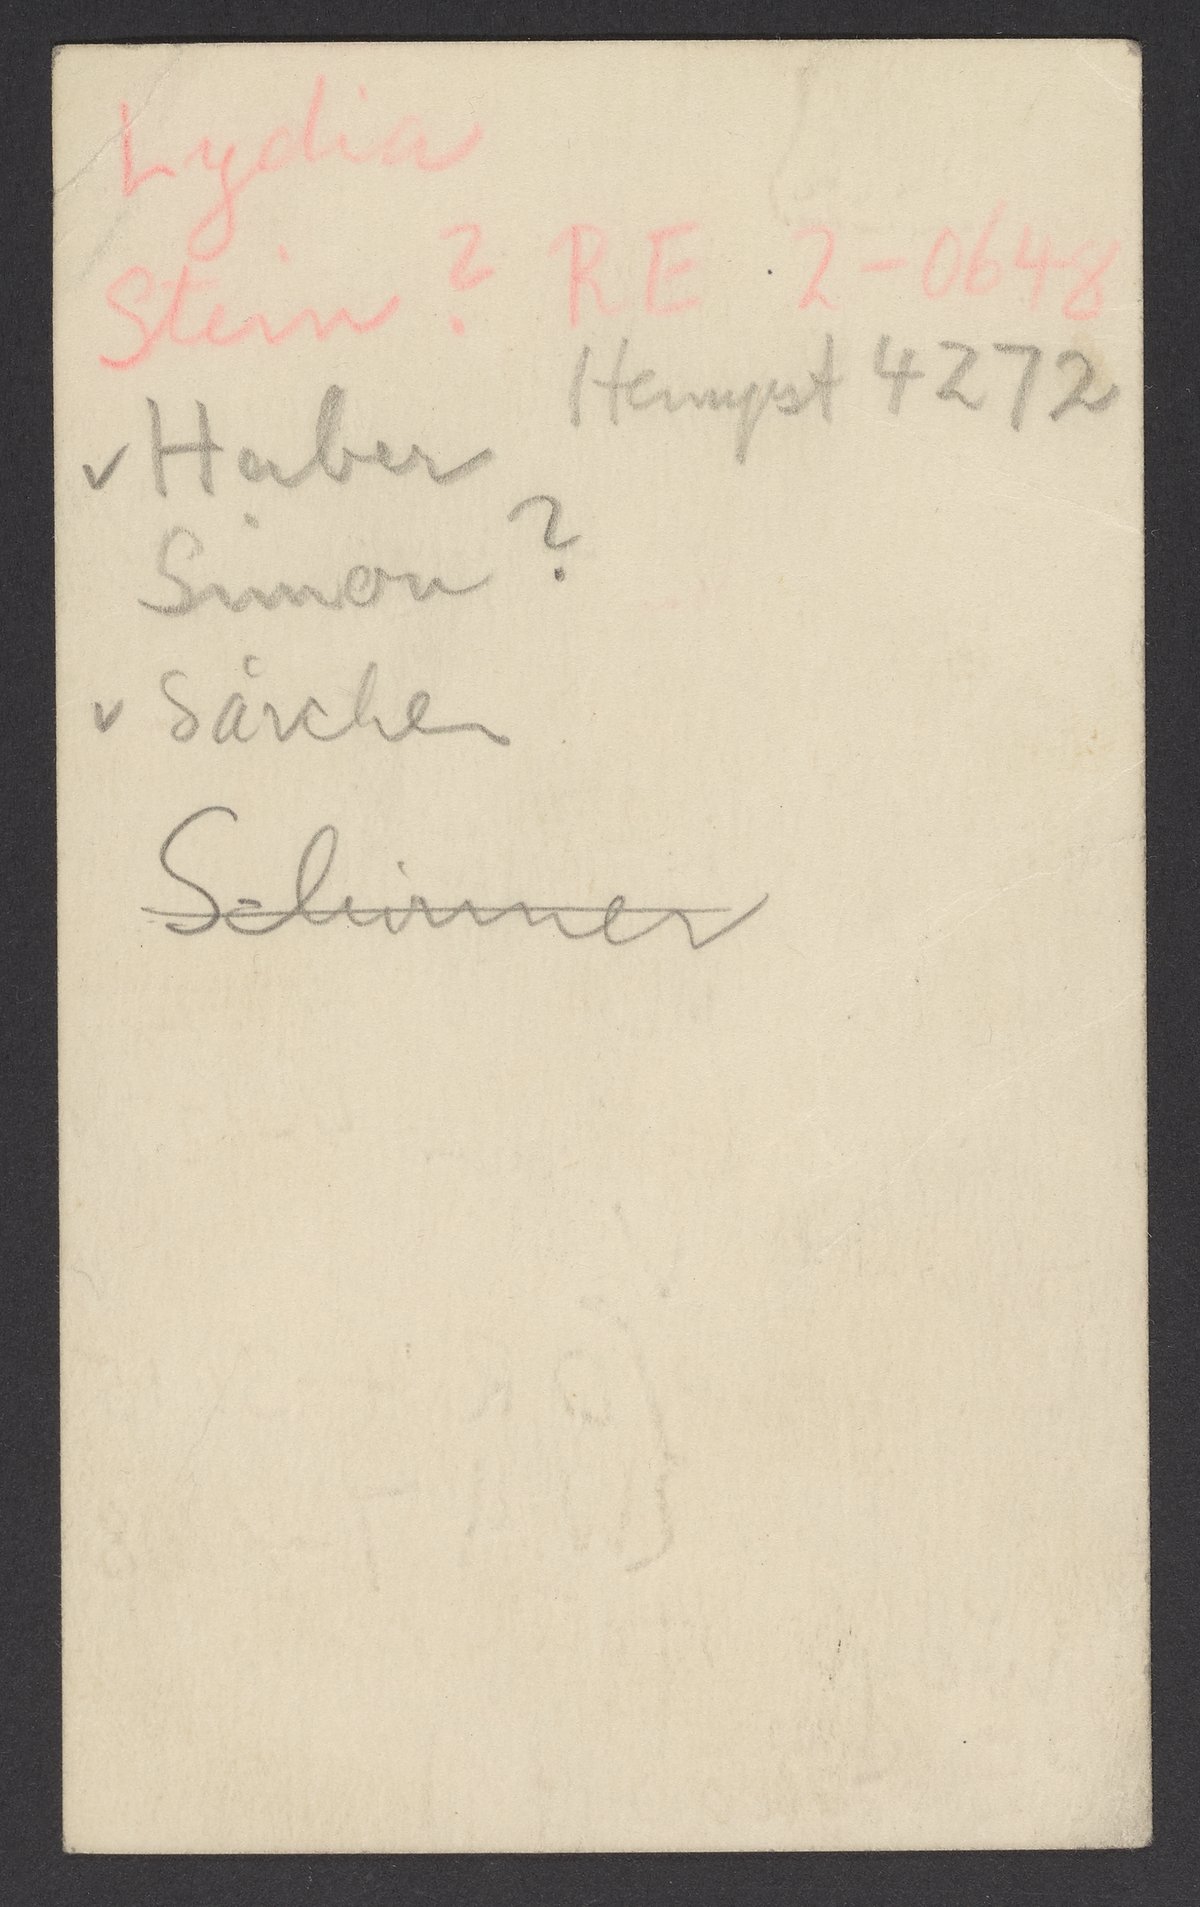 Lydia
Stein? RE 2-0648
Hempst 4272
✓ Haber
Simon ?
✓ Särchen
Schirmer